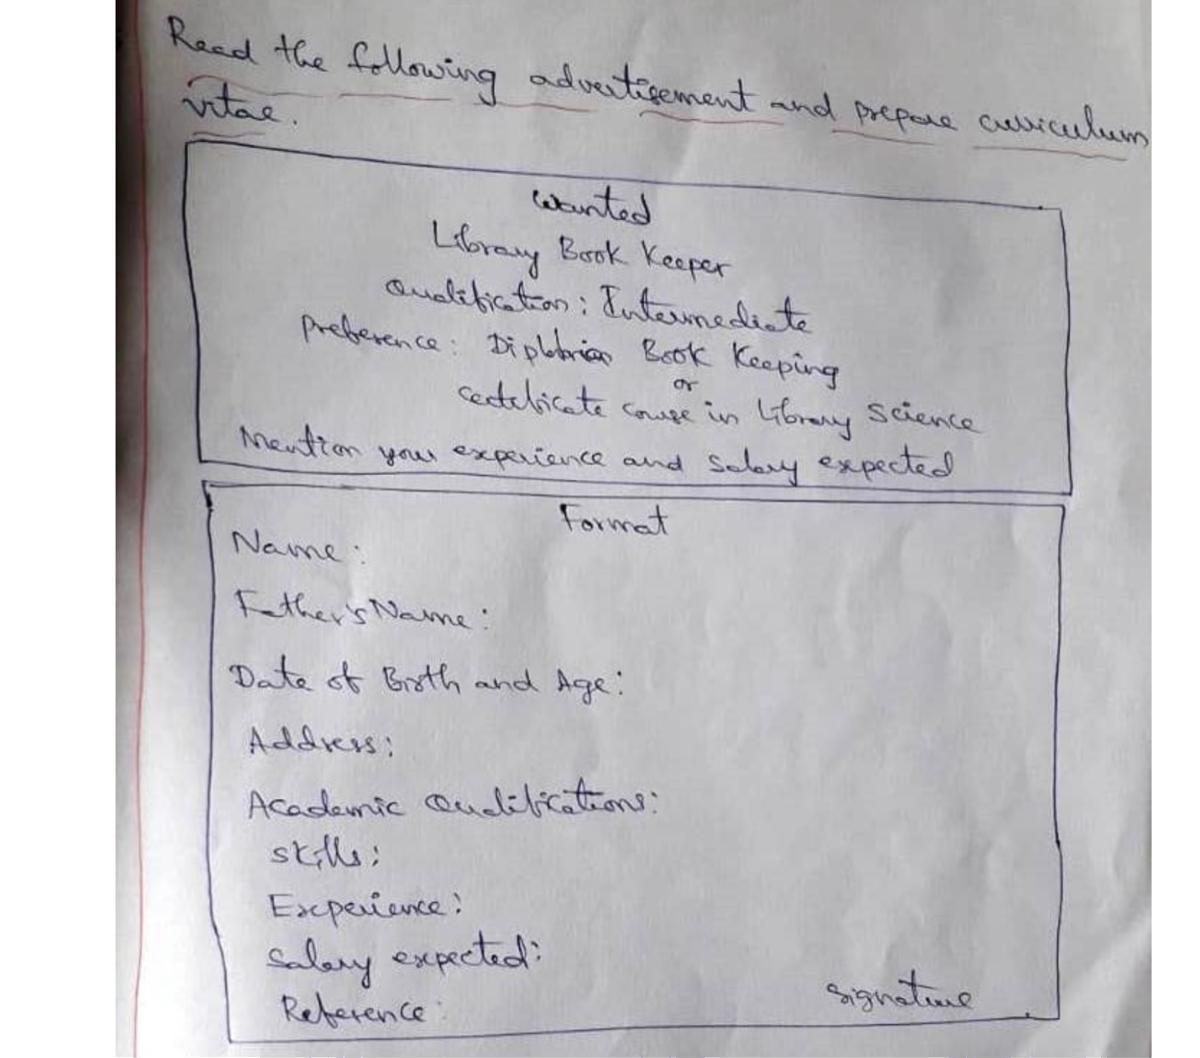 Read the following advertisement and prepare curriculum
vitae.
Wanted
Library Book Keeper
Qualification: Intermediate
Preference: Book Keeping
or
certificate course in Library Science
Mention your experience and salary expected
Format
Name:
Father's Name:
Date of Birth and Age:
Address:
Academic Qualifications:
Skills:
Experience:
Salary expected:
Reference:
Signature